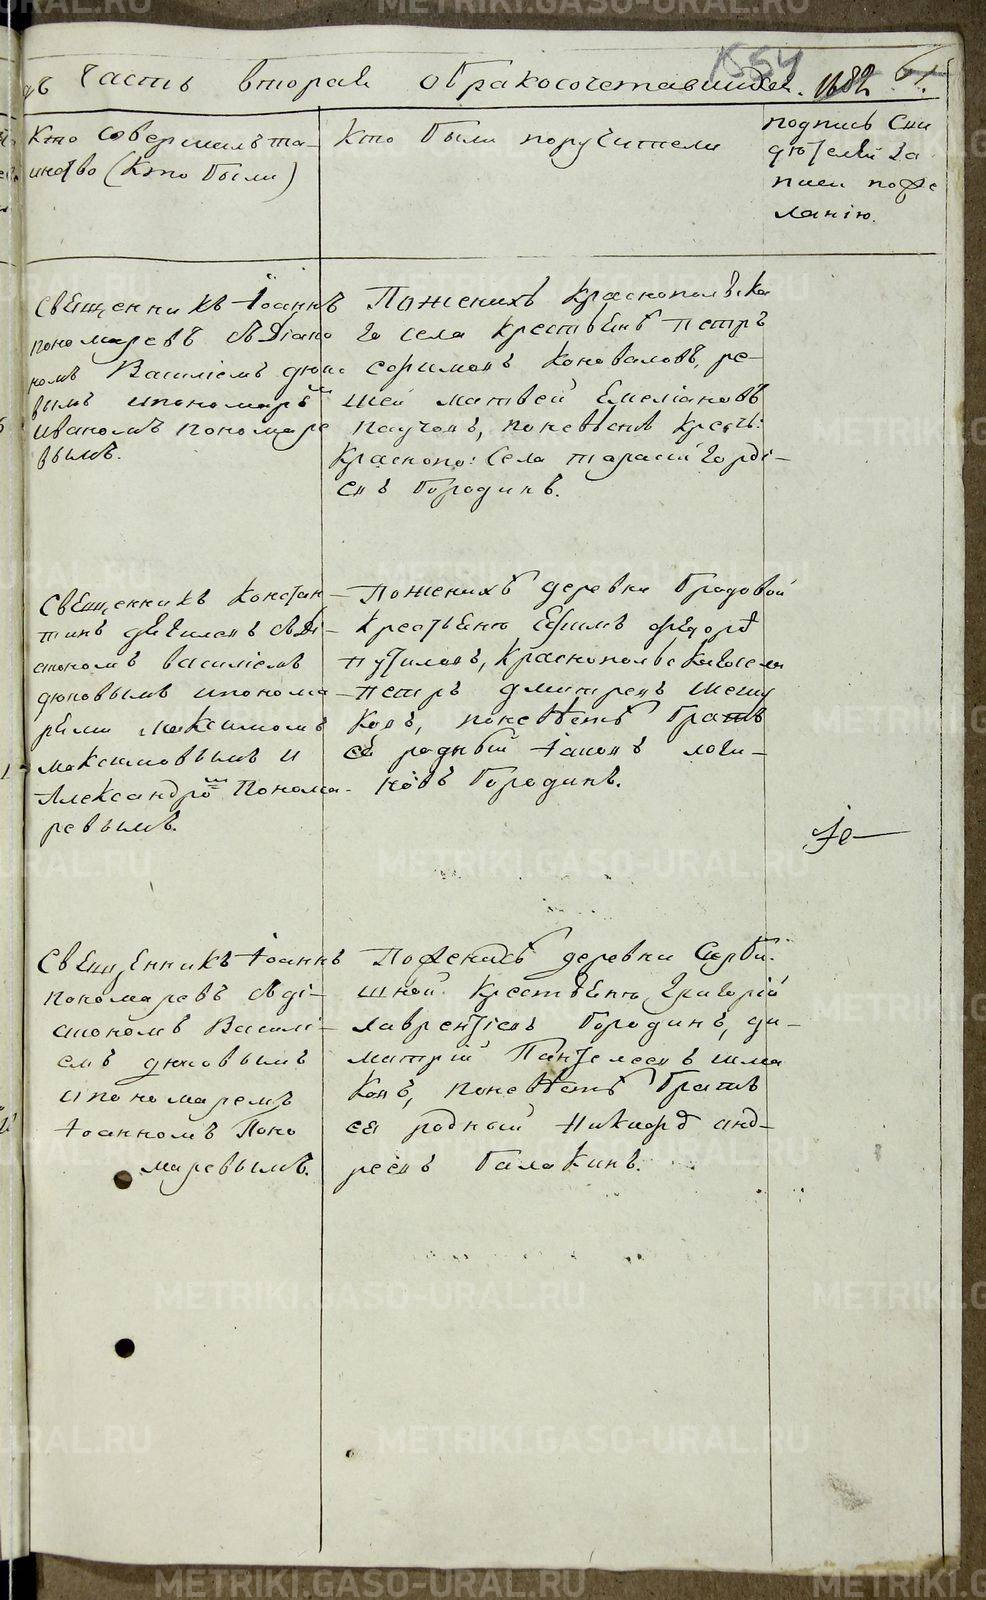 дъ Часть вторая обракосочетавшихся.
Кто совершилъ та-
инство (Кто были)
Кто были поручители
подпись сви
дѣтелей за
писи поже
ланію.
Священникъ Іоаннъ
пономаревъ съ Діако
номъ Василіемъ дюко
вымъ ипономаремъ
иваномъ пономаре
вымъ.
Поженихъ Краснопольска
го села крестьянъ петръ
ефимовъ Коноваловъ,
матвей Емеліановъ
паучовъ, поневѣстѣ крестъ:
Краснопо: Села тарасій горді-
евъ бородинъ.
Священникъ Констан-
тинъ съ Ді-
акономъ василіемъ
дюковымъ ипонома-
рями Максимомъ
максимовымъ и
Александромъ Понома-
ревымъ.
Поженихъ деревни бродовой
крестьянъ Ефимъ федоръ
путиловъ, Краснопольскагосела
петръ дмитревъ шешу
ковъ, поневѣстѣ братъ
её родный іаковъ логи-
новъ бородинъ.
Священникъ Іоаннъ
пономаревъ съ ді-
акономъ Василі-
емъ дюковымъ
ипономаремъ
Іоанномъ Поно
маревымъ.
Поженихѣ деревни Серби-
шной крестьянъ Григорій
лаврентіевъ бородинъ, ди-
митрій Пантелеевъ шма
ковъ, поневѣстѣ братъ
ея родный Никифоръ анд-
реевъ балакинъ.
METRIKI.GASO-URAL.RU